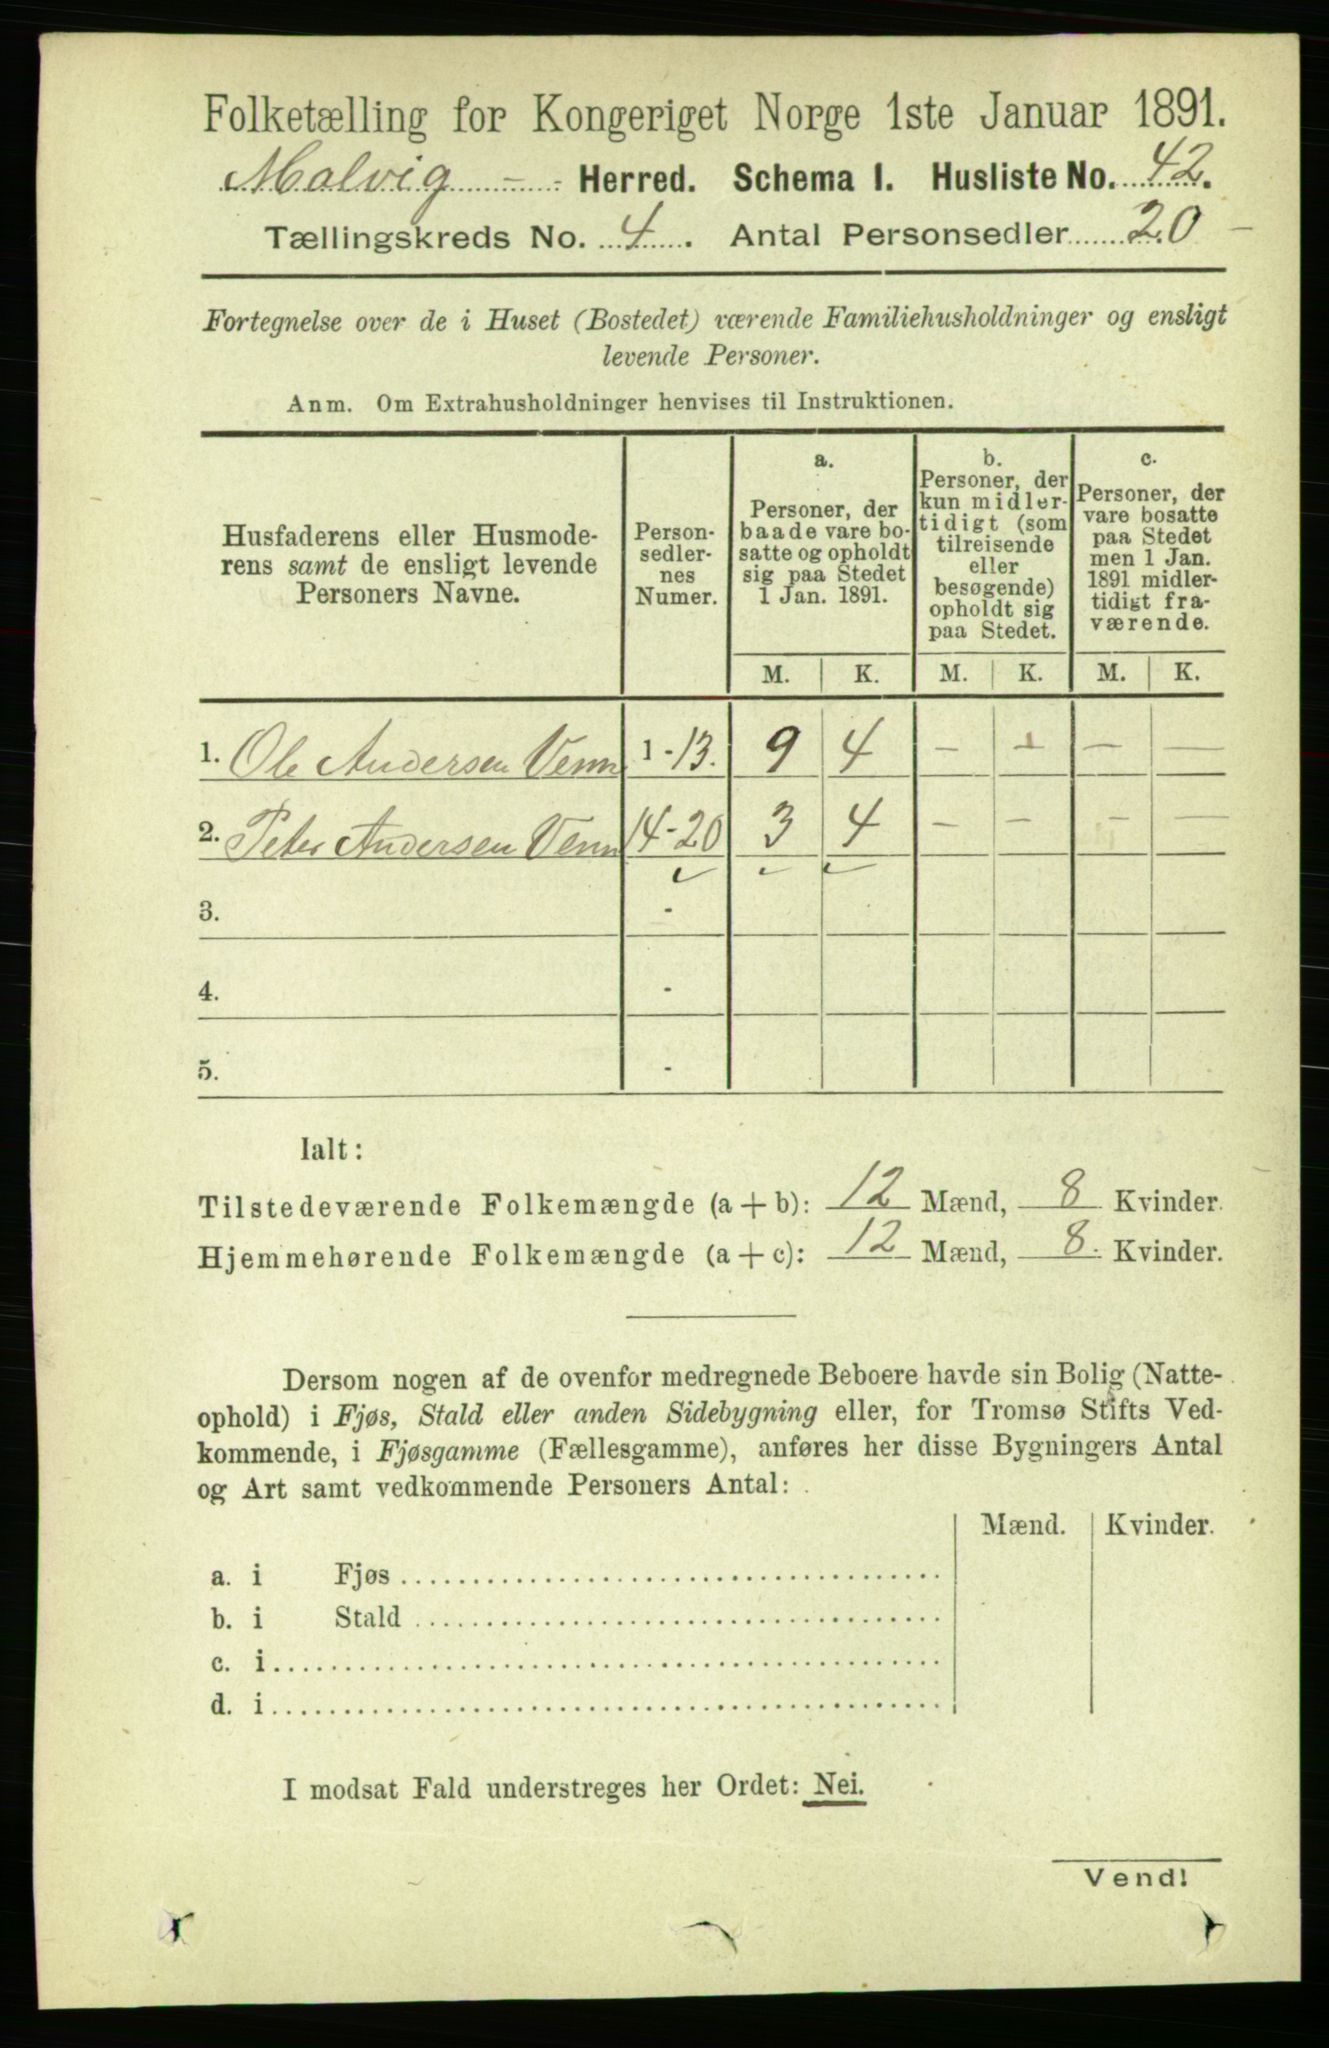 Folketælling for Kongeriget Norge 1ste Januar 1891.
Malvig - Herred. Schema 1. Husliste No. 42.
Tællingskreds No. 4. Antal Personsedler 20 -
Fortegnelse over de i Huset (Bostedet) værende Familiehusholdninger og ensligt
levende Personer.
Anm. Om Extrahusholdninger henvises til Instruktionen.
Husfaderens eller Husmode-
rens samt de ensligt levende
Personers Navne.
Person-
sedler-
nes
Numer.
a.
Personer, der
baade vare bo-
satte og opholdt
sig paa Stedet
1 Jan. 1891.
b.
Personer, der
kun midler-
tidigt (som
tilreisende
eller
besøgende)
opholdt sig
paa Stedet.
c.
Personer, der
vare bosatte
paa Stedet
men 1 Jan.
1891 midler-
tidigt fra-
værende.
M. K. M. K. M. K.
1. Ole Andersen Venn 1-13. 9 4 - - - -
2. Peter Andersen Venn 14-20 3 4 - - - -
3. -
4. -
5. -
Ialt:
Tilstedeværende Folkemængde (a + b): 12 Mænd, 8 Kvinder.
Hjemmehørende Folkemængde (a + c): 12 Mænd, 8. Kvinder.
Dersom nogen af de ovenfor medregnede Beboere havde sin Bolig (Natte-
ophold) i Fjøs, Stald eller anden Sidebygning eller, for Tromsø Stifts Ved-
kommende, i Fjøsgamme (Fællesgamme), anføres her disse Bygningers Antal
og Art samt vedkommende Personers Antal:
Mænd. Kvinder.
a. i Fjøs
b. i Stald
c. i
d. i
I modsat Fald understreges her Ordet: Nei.
Vend!